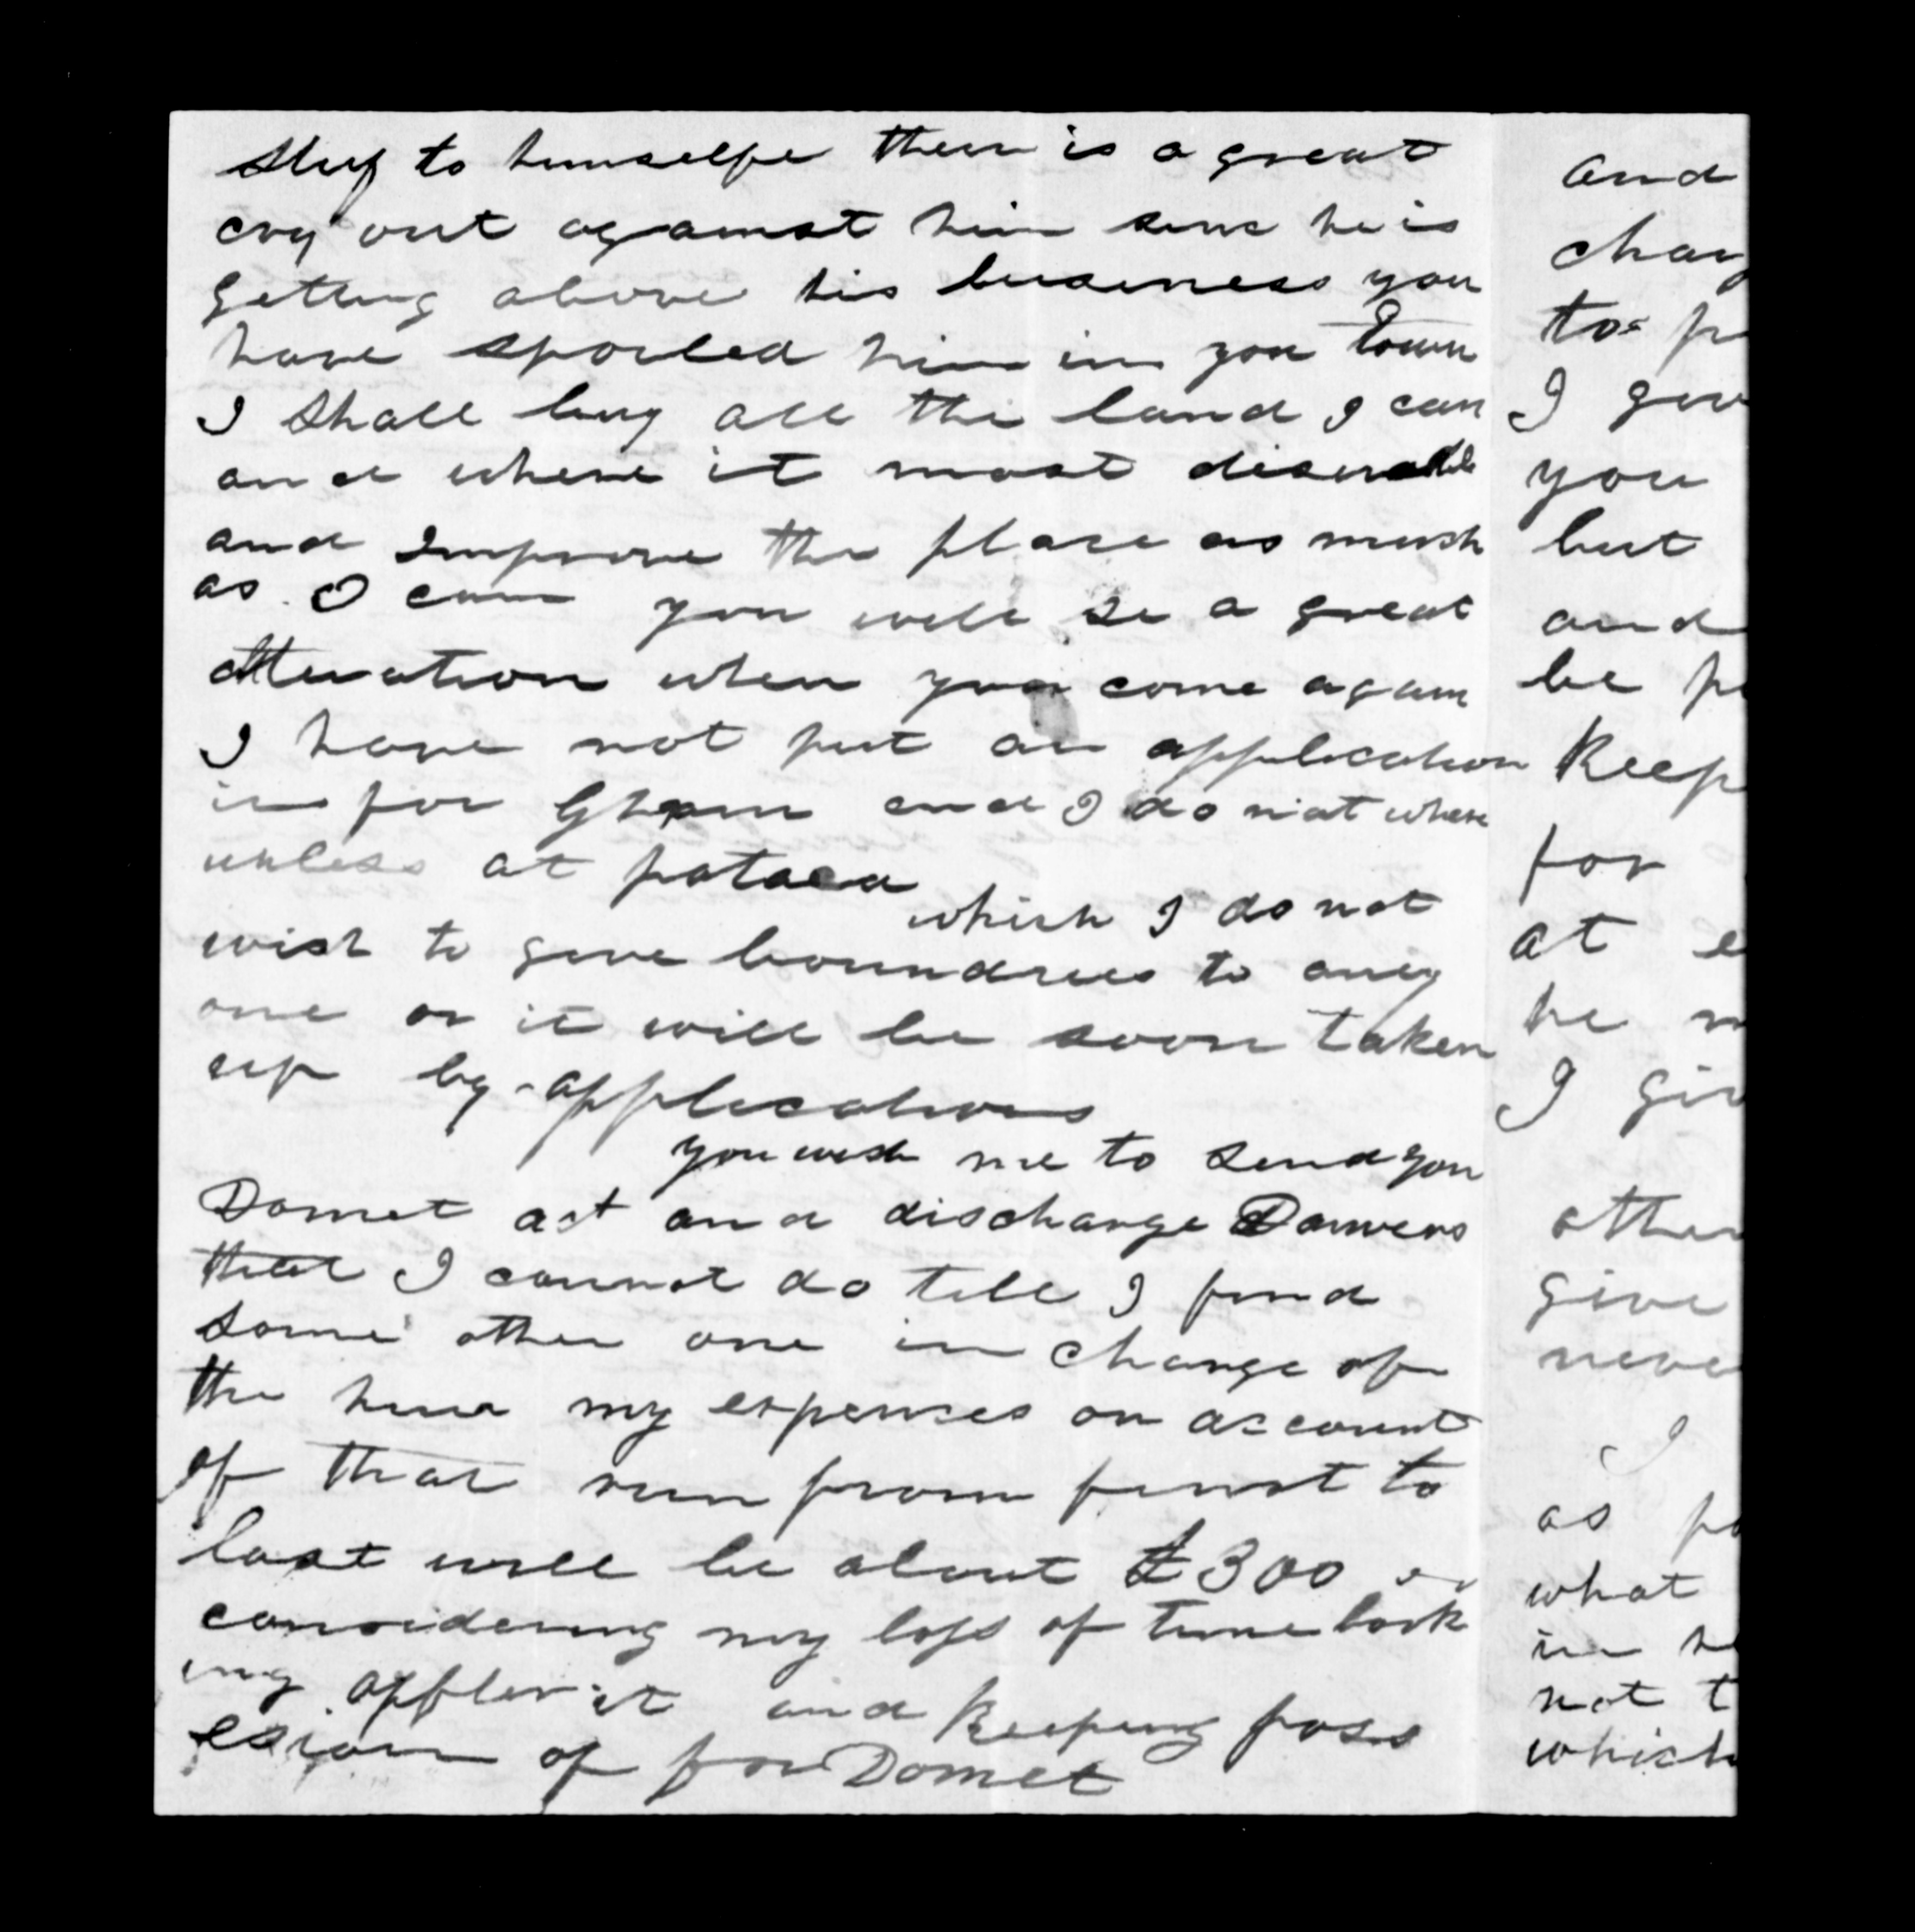 to himselfe there is a great
cry out against him sinc he is
getting above his buseness you
have spoiled him in you town
I shall buy all the land I can
and where it most diserable
and Improve the place as much
as I can you will se a great
alteration when you come again
I have not put an application
in for and I do not where
unless at pataea
which I do not
wish to give boundrees to any
one or it will be soon taken
up by applications
you wish me to send you
Domet act and discharge Danvers
that I cannot do till I find
some other one in charge of
the my expenses on account
of that run from first to
last will be about £300
considering my loss of time look
ing after it and Keeping poss
esion of for Domet
and
to
I
you
but
and
be
Keep
for
at
he
I
other
give
I
as
what
in
not
which